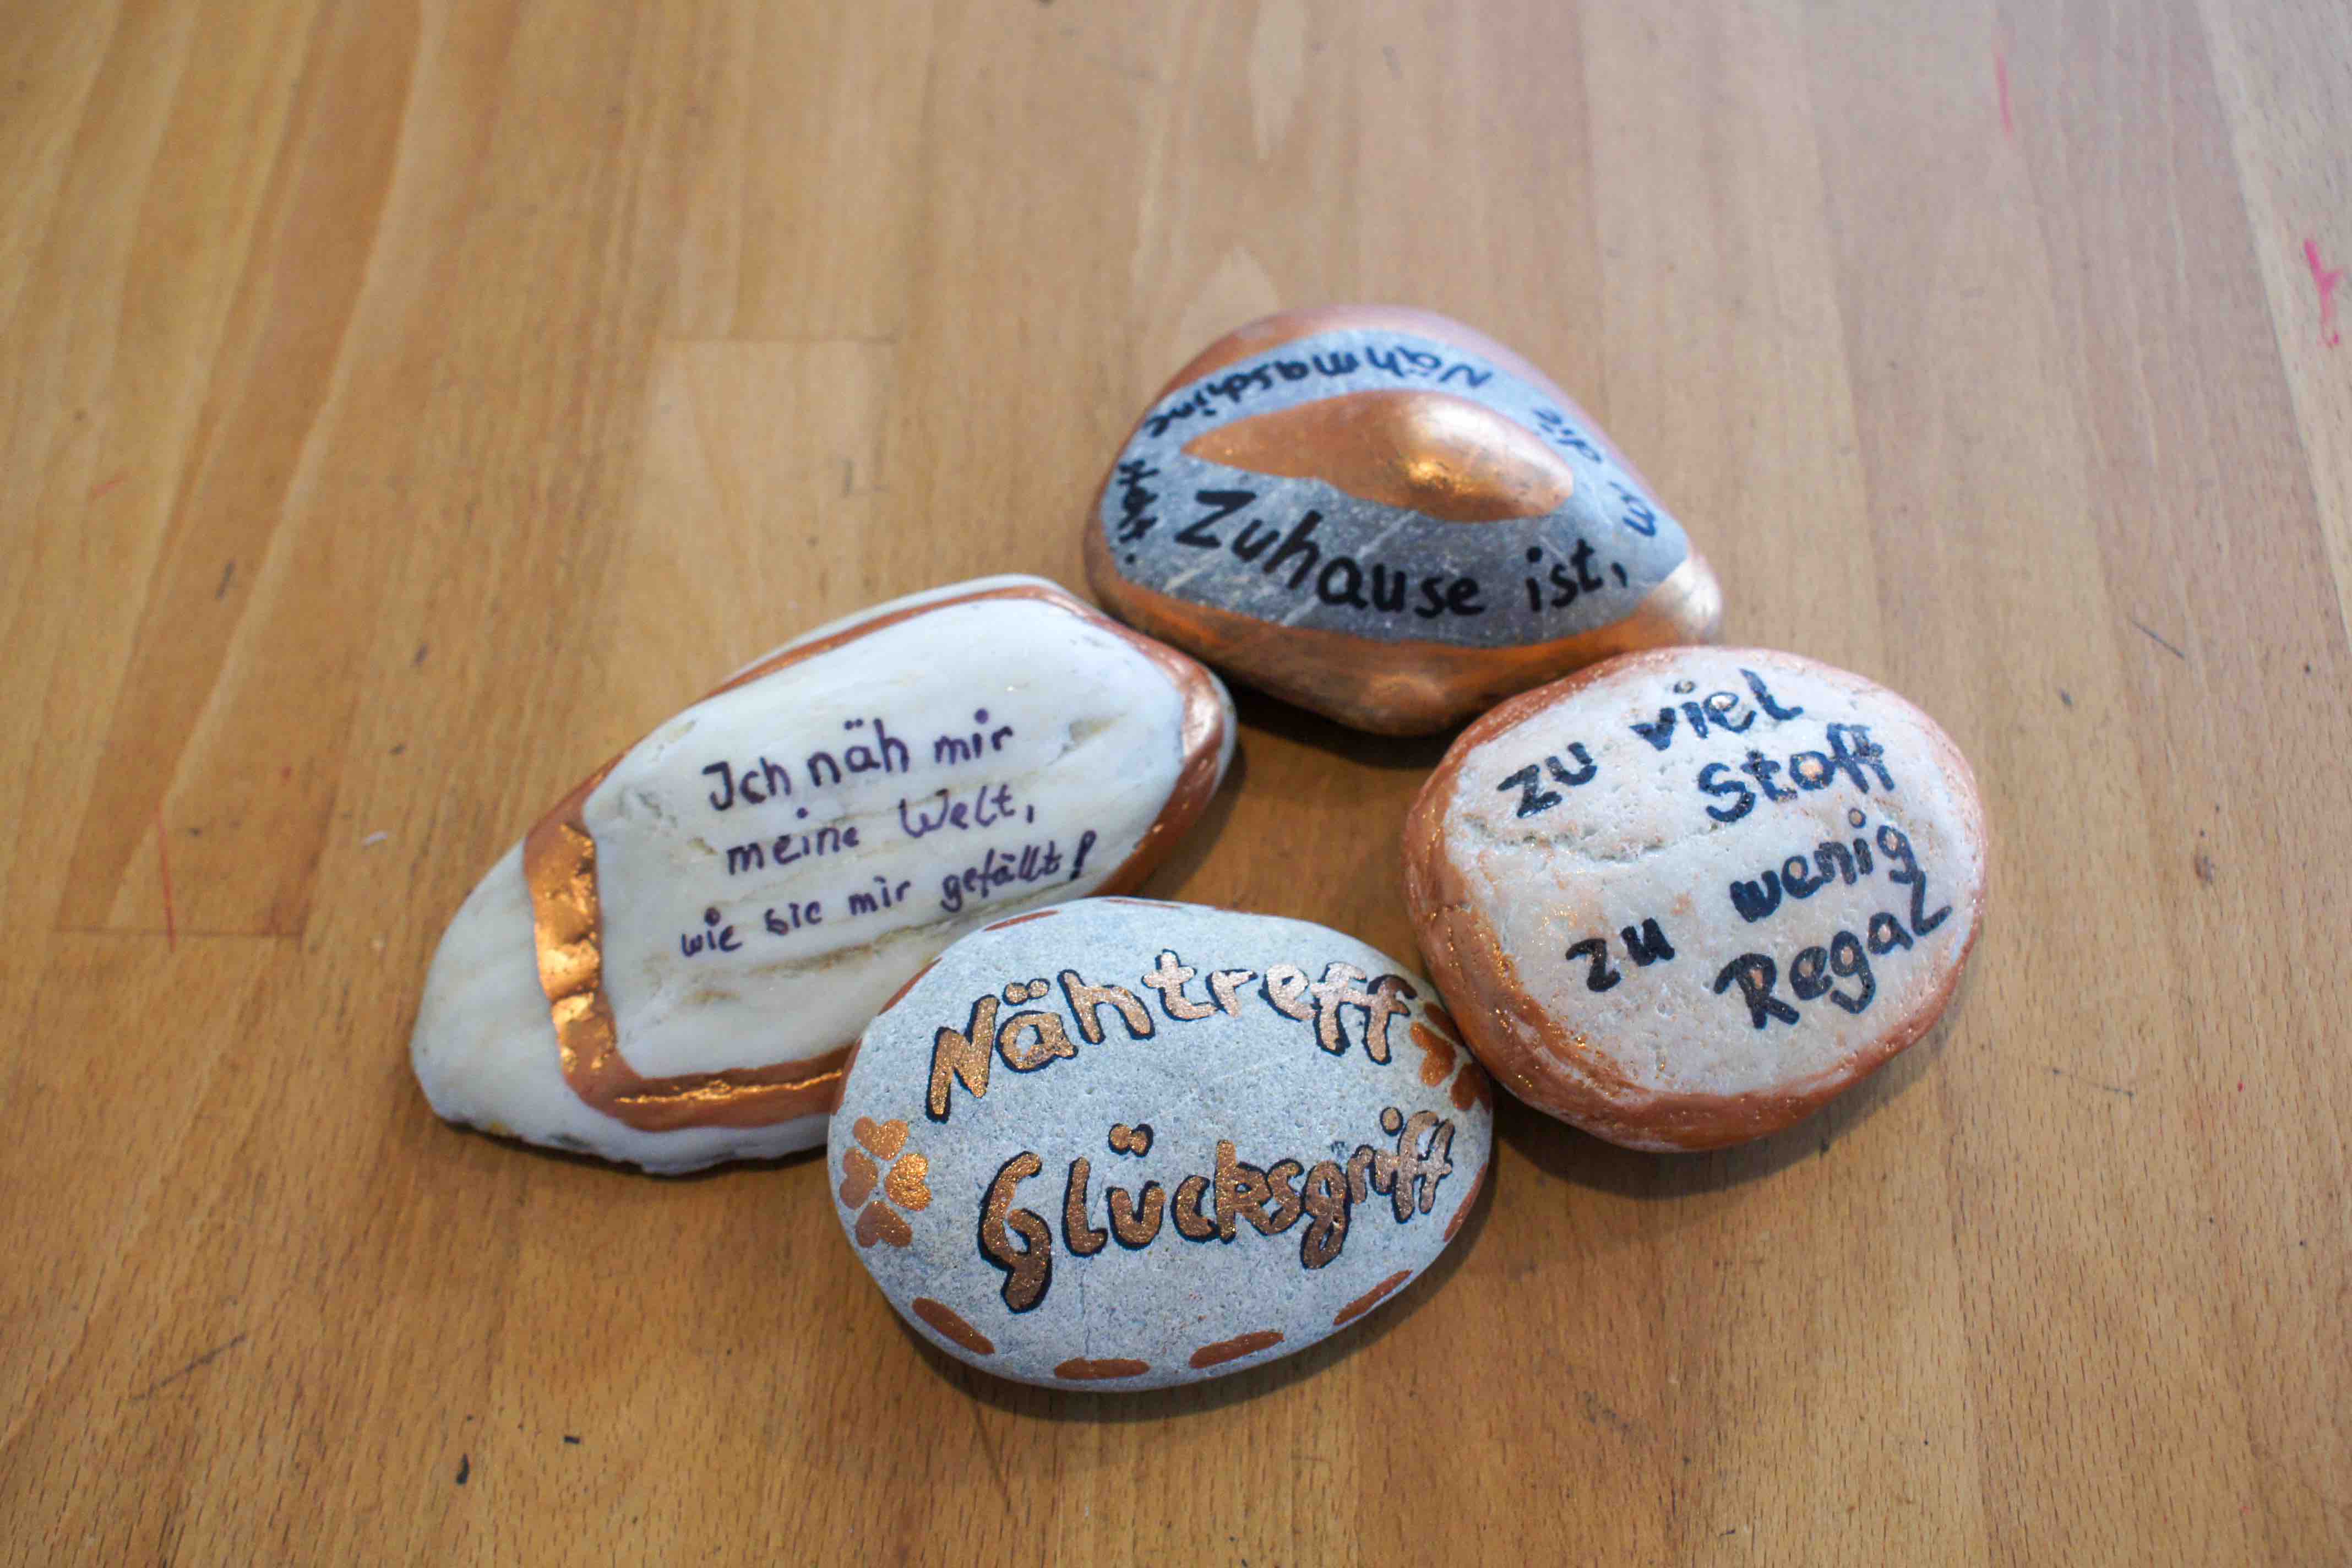 Zuhause ist,
wo die
Nähmaschine
steht.
Ich näh mir
meine Welt,
wie sie mir gefällt!
zu viel
Stoff
zu wenig
Regal
Nähtreff
Glücksgriff